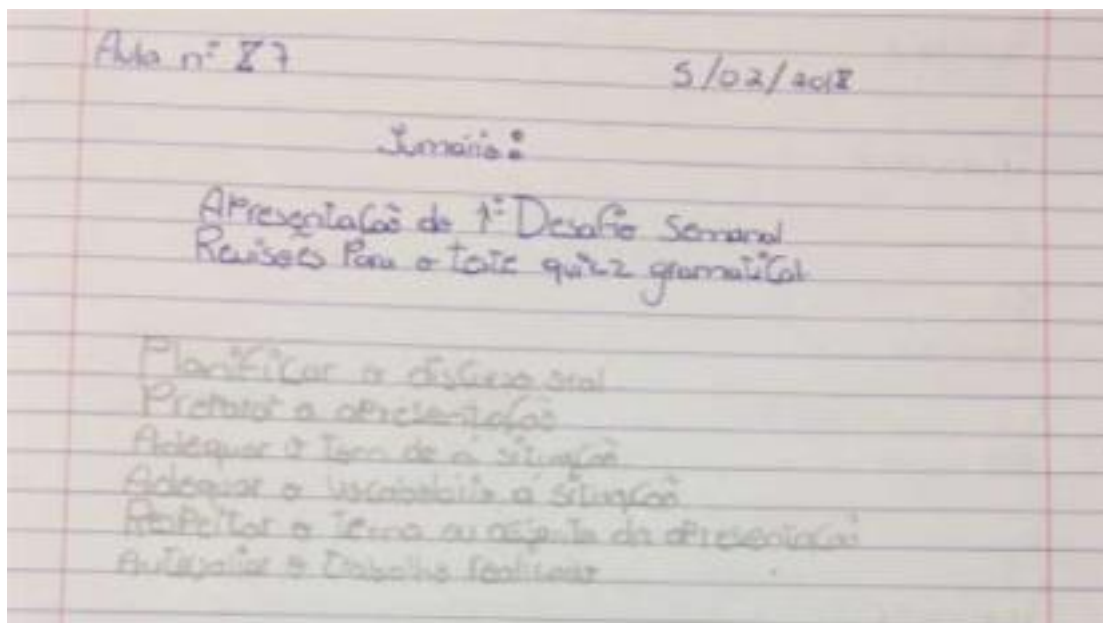 Aula nº 87
5/02/2018
Sumário:
Apresentação do 1º Desafio Semanal
Revisões Para o teste quizz gramatical
Planificar o discurso oral
Preparar a apresentação
Adequar o tom de à situação
Adequar o vocabolário à situação
Respeitar o tema ou assunto da apresentação
Autoavaliar o trabalho realizado